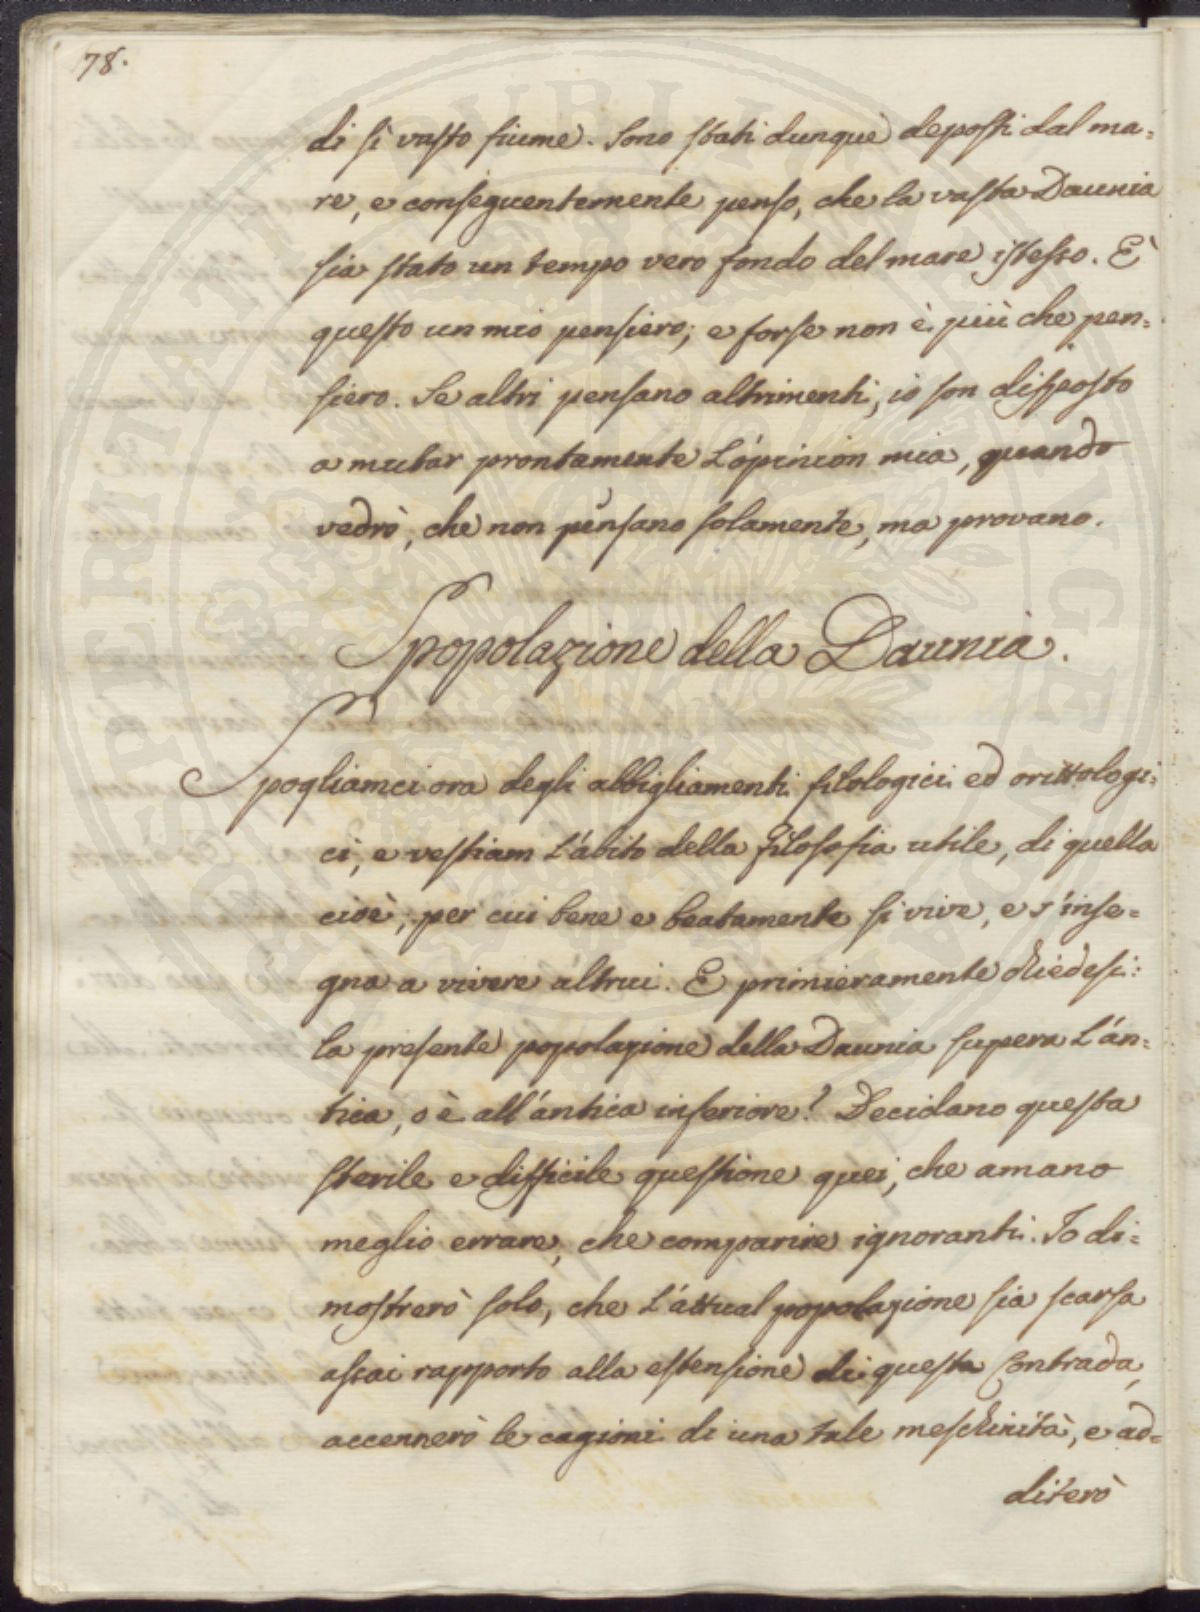 78.
di sì vasto fiume. Sono stati dunque deposti dal ma=
re, e conseguentemente penso, che la vasta Daunia
sia stato un tempo vero fondo del mare istesso. È
questo un mio pensiero; e forse non è più che pen=
siero. Se altri pensano altrimenti, io son disposto
a mutar prontamente l'opinion mia, quando
vedrò, che non pensano solamente, ma provano.
Spopolazione della Daunia.
Spogliamci ora degli abbigliamenti filologici ed orittologi=
ci, e vestiam l'abito della filosofia utile, di quella
cioè, per cui bene e beatamente si vive, e s'inse=
gna a vivere altrui. E primieramente chiedesi:
la presente popolazione della Daunia supera l'an=
tica, o è all'antica inferiore? Decidano questa
sterile e difficile questione quei, che amano
meglio errare, che comparire ignoranti. Io di=
mostrerò solo, che l'attual popolazione sia scarsa
assai rapporto alla estensione di questa Contrada,
accennerò le cagioni di una tale meschinità, e ad=
diterò
POSTERITATI PVBLICAE IVGENDA